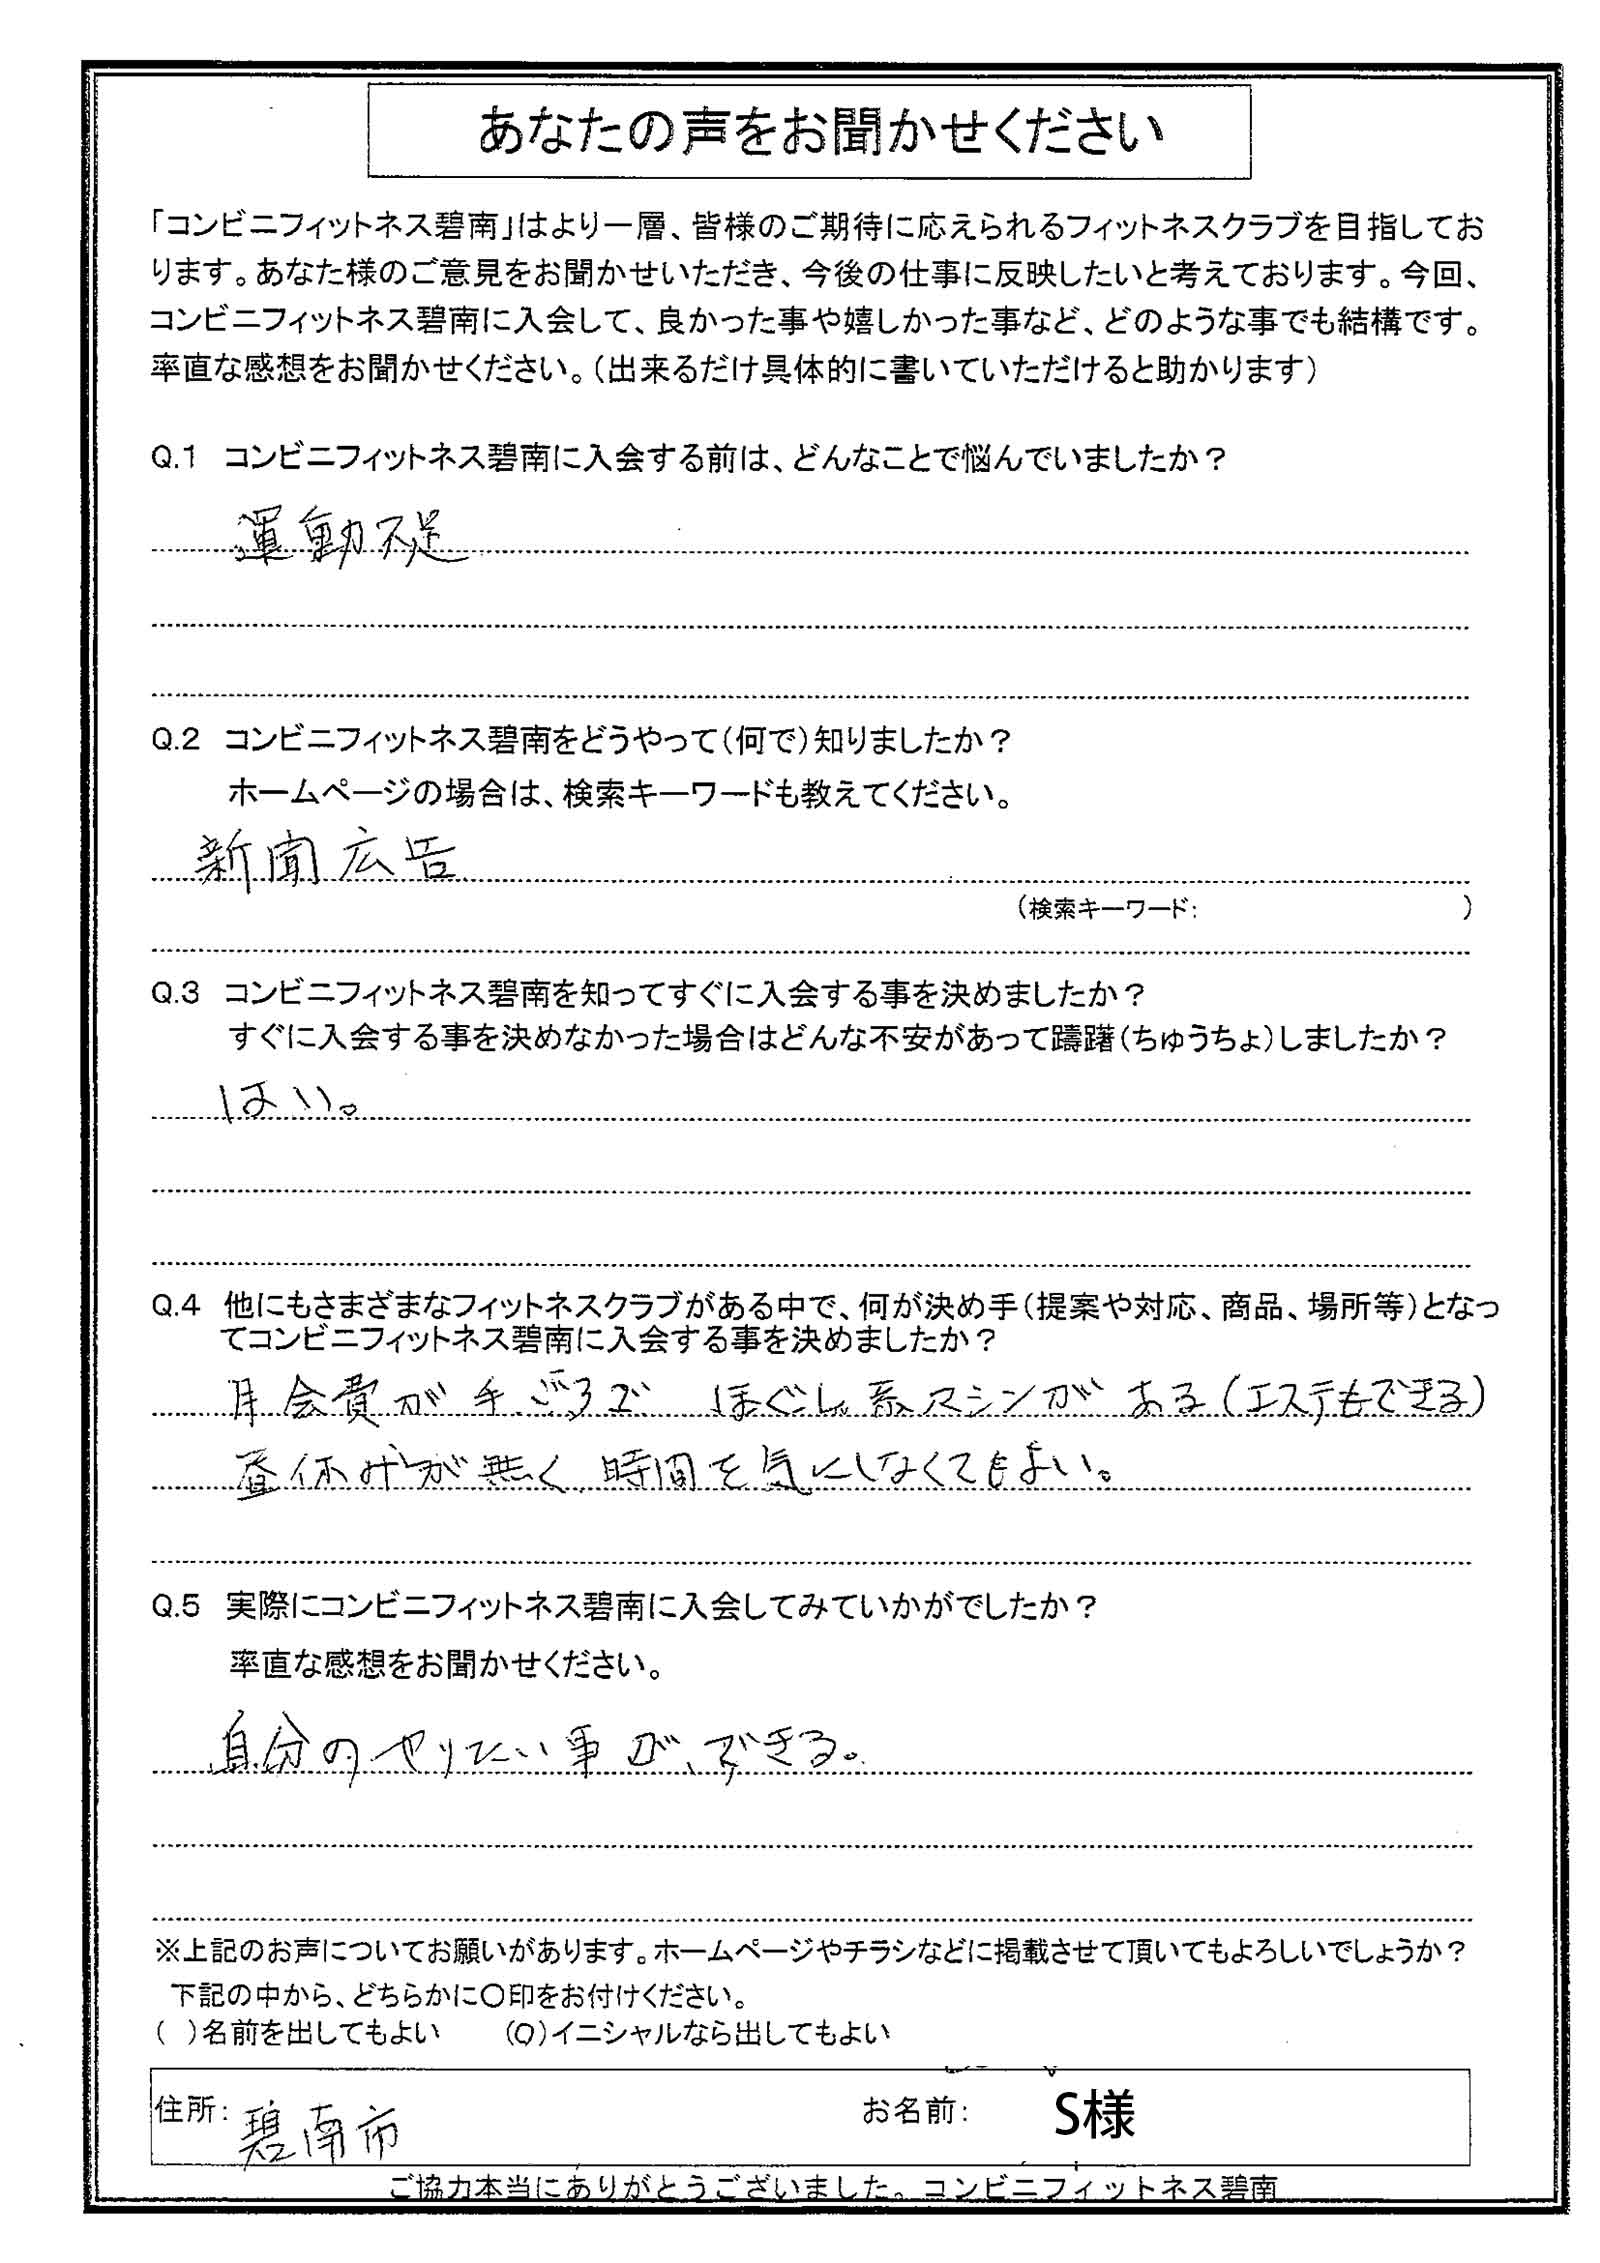 あなたの声をお聞かせください
「コンビニフィットネス碧南」はより一層、皆様のご期待に応えられるフィットネスクラブを目指してお
ります。あなた様のご意見をお聞かせいただき、今後の仕事に反映したいと考えております。今回、
コンビニフィットネス碧南に入会して、良かった事や嬉しかった事など、どのような事でも結構です。
率直な感想をお聞かせください。（出来るだけ具体的に書いていただけると助かります）
Q.1 コンビニフィットネス碧南に入会する前は、どんなことで悩んでいましたか？
運動不足
Q.2 コンビニフィットネス碧南をどうやって（何で）知りましたか？
ホームページの場合は、検索キーワードも教えてください。
新聞広告
（検索キーワード： ）
Q.3 コンビニフィットネス碧南を知ってすぐに入会する事を決めましたか？
すぐに入会する事を決めなかった場合はどんな不安があって躊躇（ちゅうちょ）しましたか？
はい。
Q.4 他にもさまざまなフィットネスクラブがある中で、何が決め手（提案や対応、商品、場所等）となっ
てコンビニフィットネス碧南に入会する事を決めましたか？
月会費が手ごろで ほぐし系マシンがある（エステもできる）
昼休みが無く、時間を気にしなくてもよい。
Q.5 実際にコンビニフィットネス碧南に入会してみていかがでしたか？
率直な感想をお聞かせください。
自分のやりたい事が、できる。
※上記のお声についてお願いがあります。ホームページやチラシなどに掲載させて頂いてもよろしいでしょうか？
下記の中から、どちらかに〇印をお付けください。
（ ）名前を出してもよい （〇）イニシャルなら出してもよい
住所： 碧南市 お名前： S様
ご協力本当にありがとうございました。コンビニフィットネス碧南